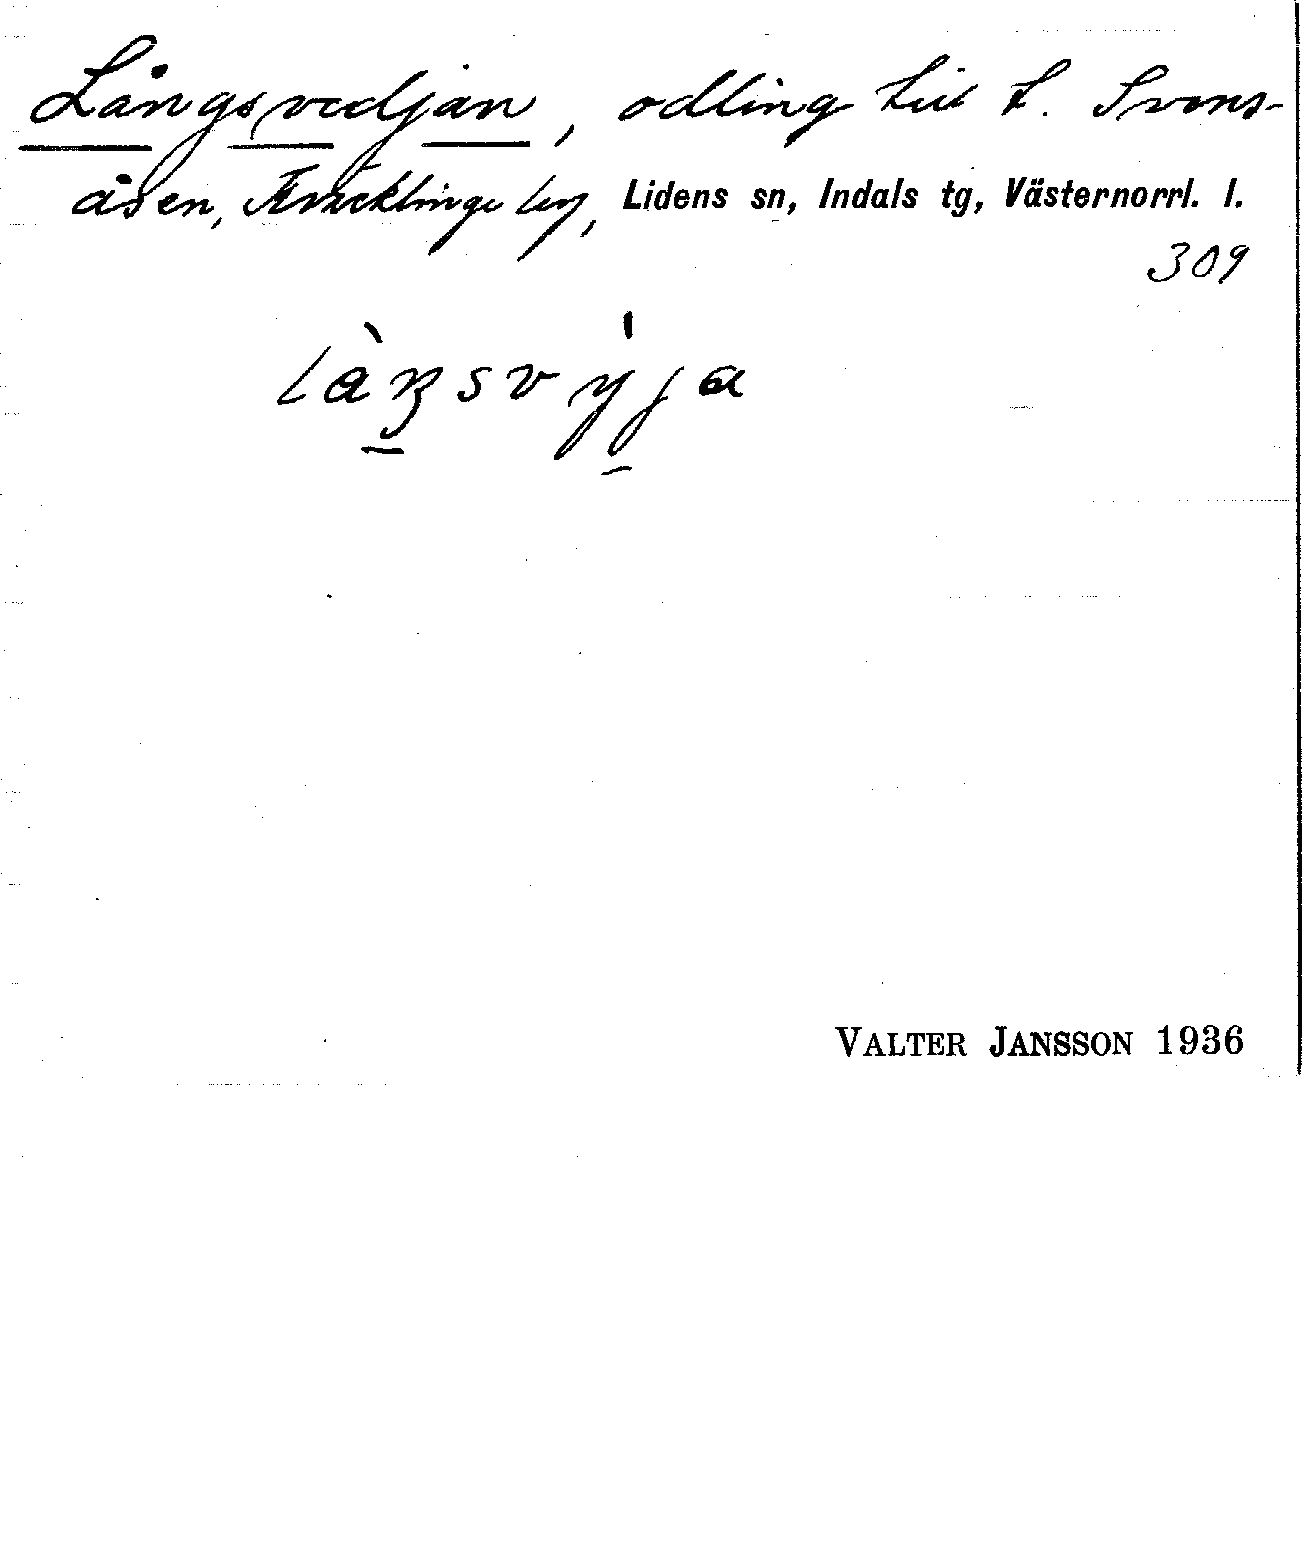 Långsvedjan, odling till t. Svens-
åsen, by, Lidens sn, Indals tg, Västernorrl. l.
309
VALTER JANSSON 1936